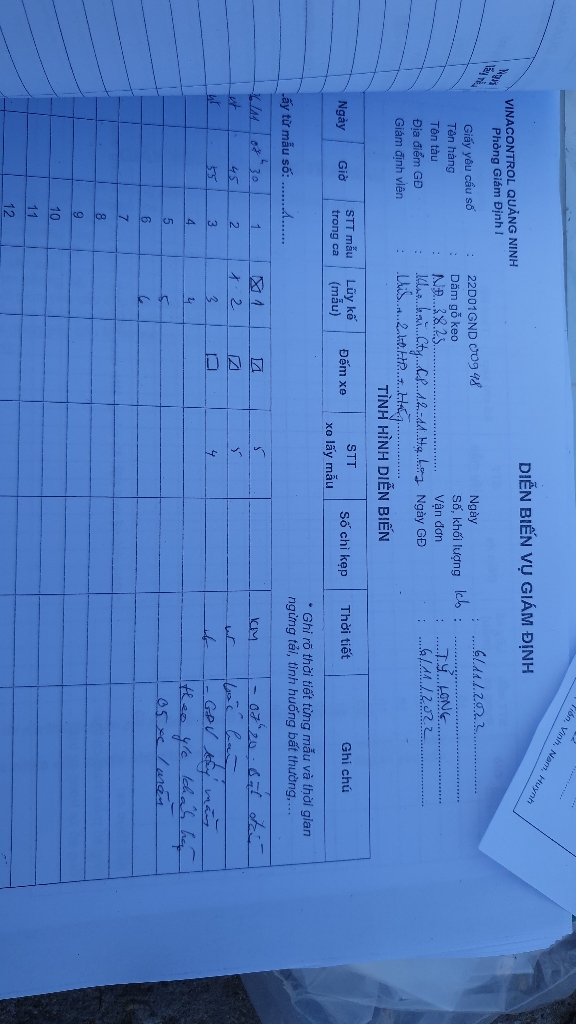 VINACONTROL QUẢNG NINH
Phòng Giám Định I
DIỄN BIẾN VỤ GIÁM ĐỊNH
Giấy yêu cầu số : 22D01GND 00998
Ngày : 6/11/2022
Tên hàng : Dăm gỗ keo
Số, khối lượng : ........
Tên tàu : NĐ 3823
Vận đơn : TỶ LONG
Địa điểm GĐ : CP 12-11
Ngày GĐ : 6/11/2022
Giám định viên :
TÌNH HÌNH DIỄN BIẾN
* Ghi rõ thời tiết từng mẫu và thời gian
ngừng tải, tình huống bất thường,...
ấy từ mẫu số: .........1.......
Ngày Giờ STT mẫu trong ca Lũy kế (mẫu) Đếm xe STT xe lấy mẫu Số chì kẹp Thời tiết Ghi chú
6/11 07h30 1 1 5 KM - 07h20. Bắt đầu
45 2 2 5
55 3 3 4 - GĐV lấy mẫu
4 4 theo y/c khách hàng
5 5 05 xe / mẫu
6 6
7
8
9
10
11
12
Trần, Vịnh, Nam, Huỳnh